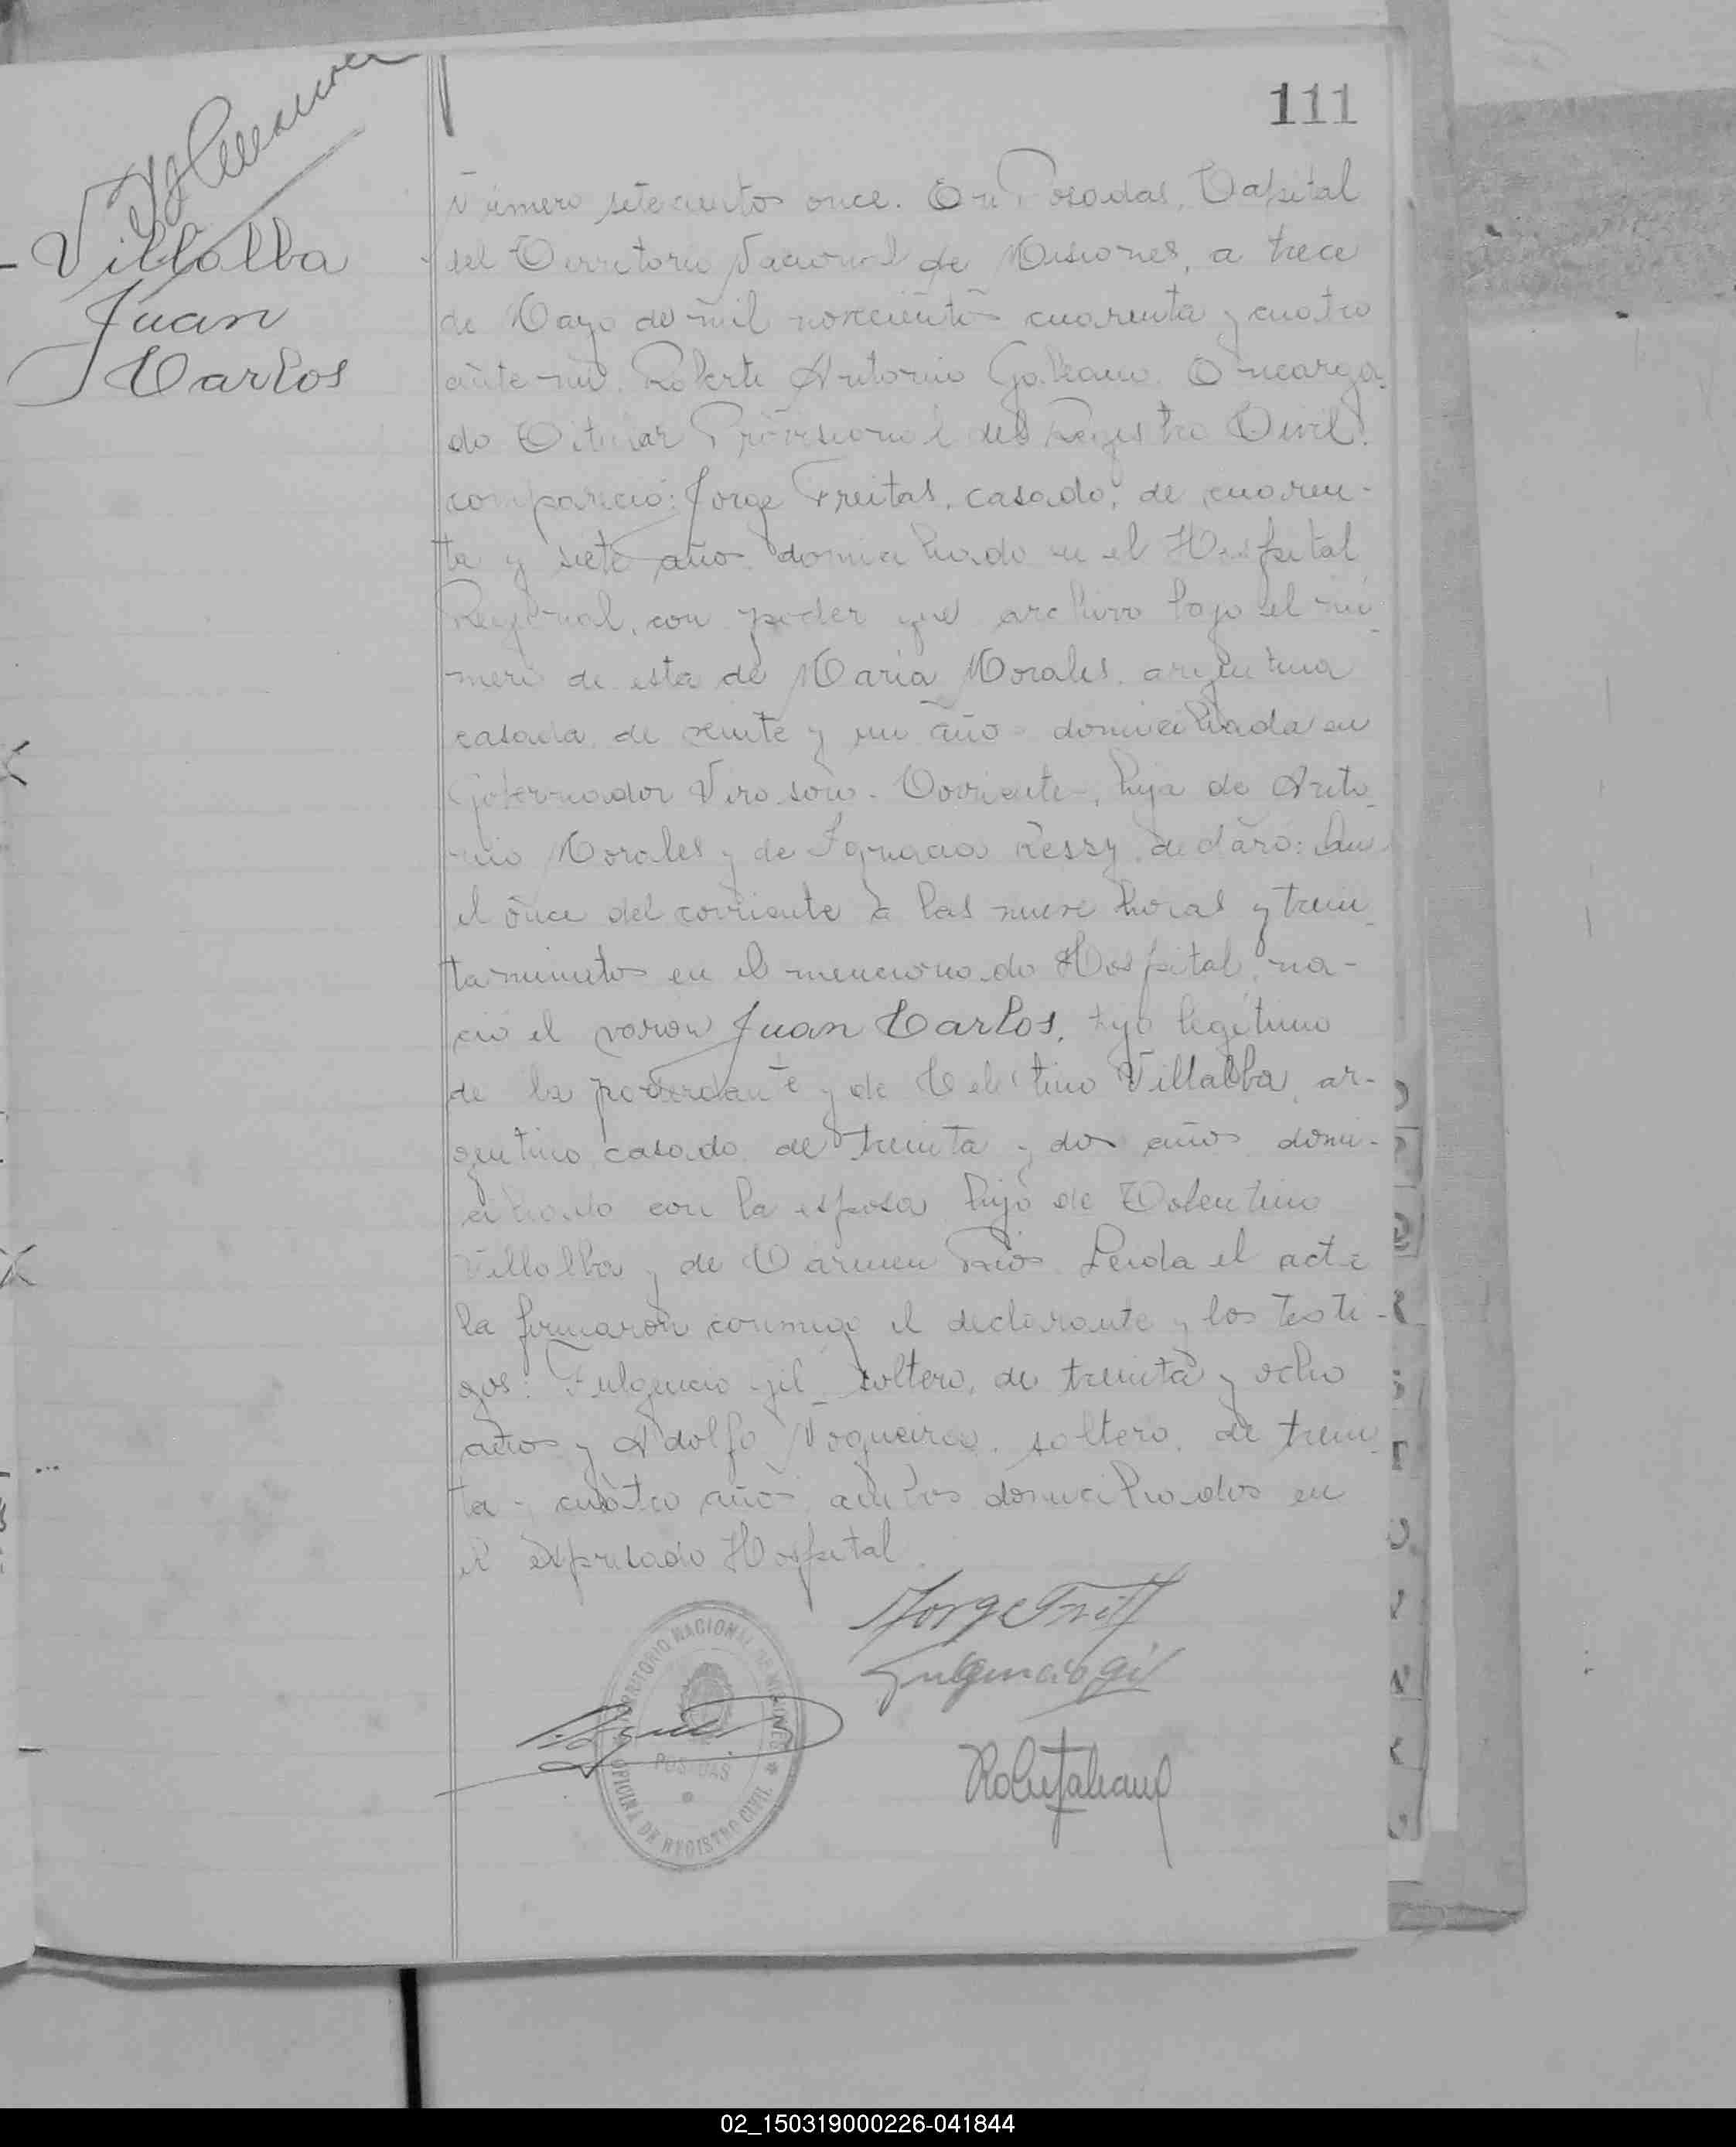 111
Villalba
Juan
Carlos
Número setecientos once. En Posadas, Capital
del Territorio Nacional de Misiones, a trece
de Mayo de mil novecientos cuarenta y cuatro
ante mi. Roberto Antonio Galeano. Encarga-
do Titular Provisional del Registro Civil.
compareció: Jorge Freitas, casado, de cuaren-
ta y siete años domiciliado en el Hospital
Regional, con poder que archivo bajo el nú-
mero de esta de Maria Morales, argentina
casada de veinte y un años domiciliada en
Gobernador Virasoro - Corrientes, hija de Anto-
nio Morales y de Ignacia declaró: Que
el once del corriente a las nueve horas y trein-
ta minutos en el mencionado Hospital, na-
ció el varon Juan Carlos, hijo legítimo
de la poderdante y de Celestino Villalba, ar-
gentino casado de treinta y dos años domi-
ciliado con la esposa hijo de Tolentino
Villalba y de Carmen Leida el acta
la firmaron conmigo el declarante y los testi-
gos: Fulgencio gil soltero, de treinta y ocho
años y Adolfo Nogueira, soltero, de trein-
ta y cuatro años ambos domiciliados en
el expresado Hospital.
Jorge
Fulgencio gil
TERRITORIO NACIONAL DE MISIONES
POSADAS
OFICINA DE REGISTRO CIVIL
02_150319000226-041844